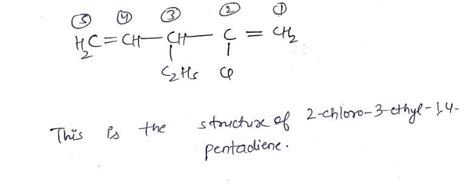 ⑤ ④ ③ ② ①
H₂C=CH—CH—C=CH₂
C₂H₅ Cl
This is the structure of 2-chloro-3-ethyl-1,4-
pentadiene.